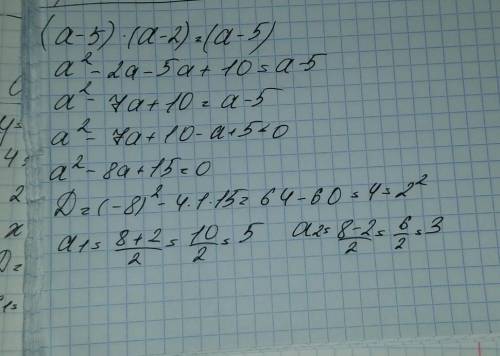 (a-5)·(a-2)=(a-5)
a²-2a-5a+10=a-5
a²-7a+10=a-5
a²-7a+10-a+5=0
a²-8a+15=0
D=(-8)²-4.1.15=64-60=4=2²
a₁=8+2/2=10/2=5 a₂=8-2/2=6/2=3
y=
4=
2
x
D=